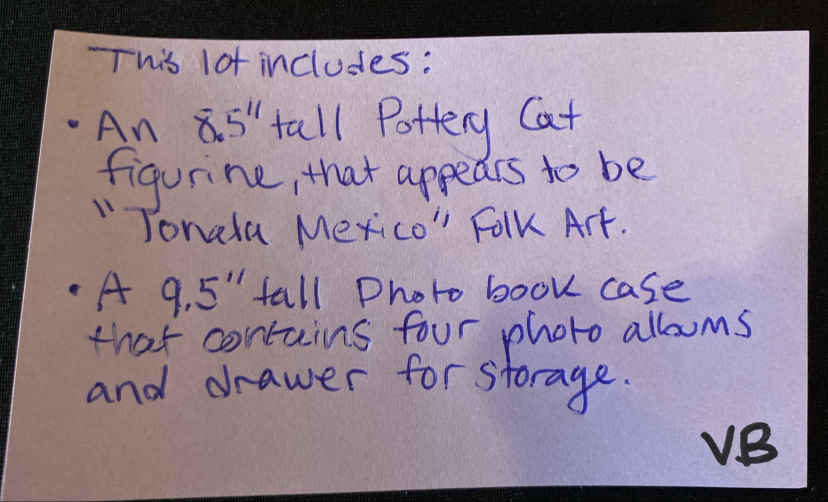 This lot includes:
• An 8.5" tall Pottery Cat
figurine, that appears to be
"Tonala Mexico" Folk Art.
• A 9.5" tall Photo book case
that contains four photo albums
and drawer for storage.
VB